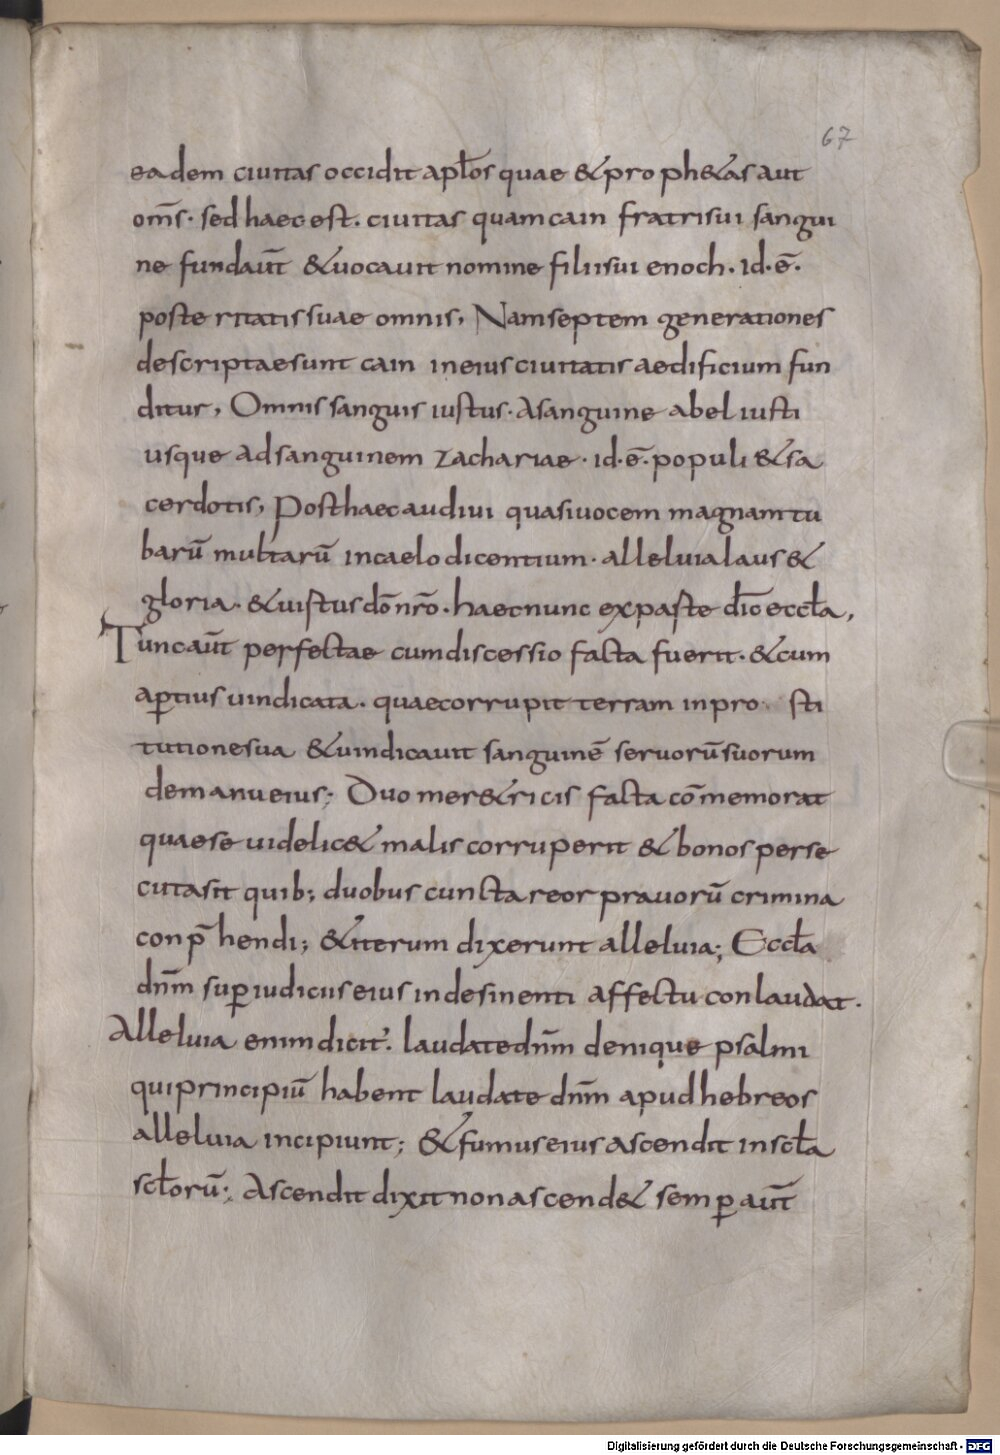 67
eadem ciuitas occidit apłos quae & proph&as aut
om̄s· sed haec est· ciuitas quam cain fratri sui sangui
ne fundaūt & uocauit nomine filii sui enoch· id·ē·
posteritatis suae omnis, Nam septem generationes
descriptae sunt cain in eius ciuitatis aedificium fun
ditur, Omnis sanguis iustus· A sanguine abel iusti
usque ad sanguinem zachariae· id·ē· populi & sa
cerdotis, Post haec audiui quasi uocem magnam tu
barū multarū in caelo dicentium· alleluia laus &
gloria· & uistus dō nr̄o· haec nunc ex paste dīc eccła,
Tunc aūt perfectae cum discessio facta fuerit· & cum
aꝑtius uindicata· quae corrupit terram in pro sti
tutione sua & uindicauit sanguinē seruorū suorum
de manu eius; Duo mer&ricis facta cōmemorat
quae se uidelic& malis corruperit & bonos perse
cuta sit quib; duobus cuncta reor prauorū crimina
conp̄hendi; & iterum dixerunt alleluia; Eccła
dn̄m suꝑ iudiciis eius indesinenti affectu conlaudat·
Alleluia enim dicit· laudate dn̄m denique psalmi
qui principiū habent laudate dn̄m apud hebreos
alleluia incipiunt; & fumus eius ascendit in scła
scłorū; Ascendit dixit non ascend& semꝑ aūt
Digitalisierung gefördert durch die Deutsche Forschungsgemeinschaft - DFG